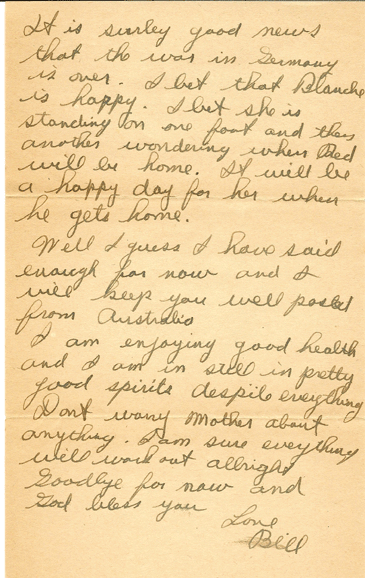 It is surley good news
that the war in Germany
is over. I bet that Blanche
is happy. I bet she is
standing on one foot and then
another wondering when Red
will be home. It will be
a happy day for her when
he gets home.
Well I guess I have said
enough for now and I
will keep you well posted
from Australia
I am enjoying good health
and I am in still in pretty
good spirits despite everything
Dont worry Mother about
anything. I am sure everything
will work out allright
Goodbye for now and
God bless you
Love
Bill